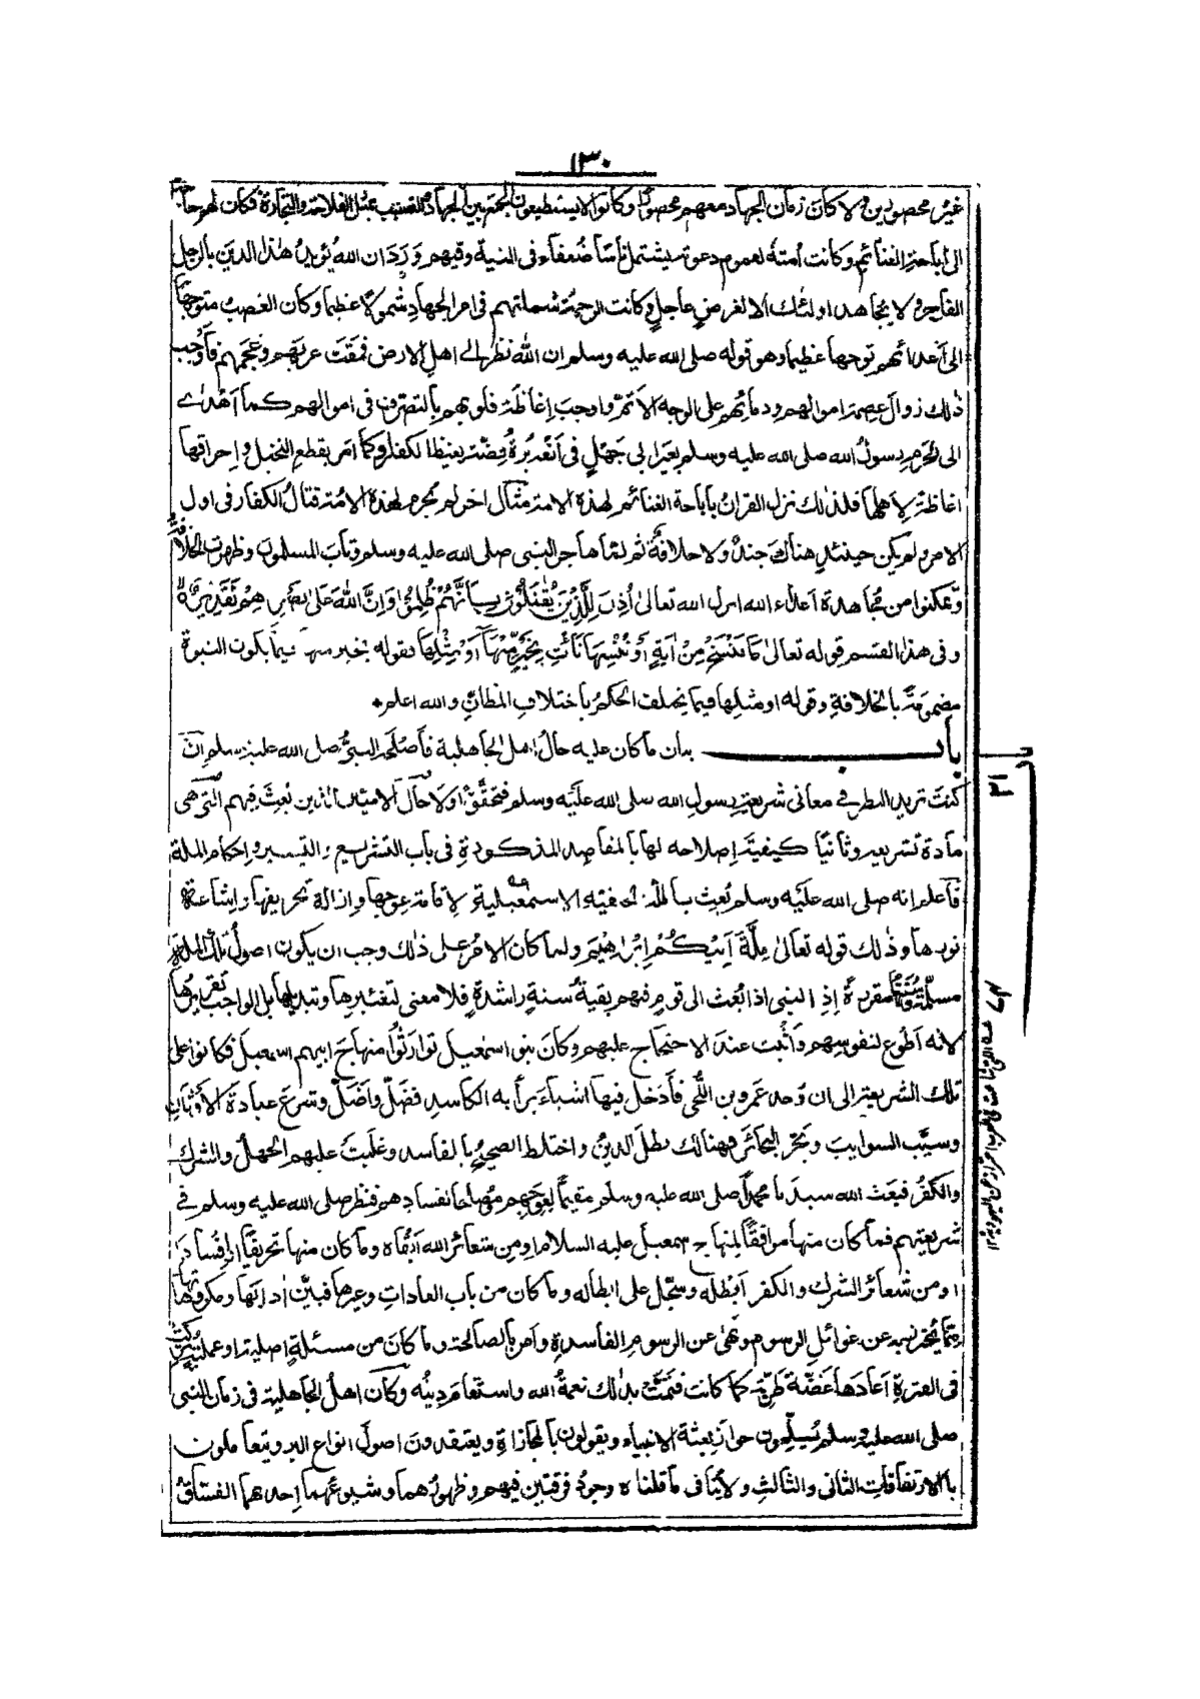 ١٣٠
غير محصورين ولا كان زمان الجهاد معهم محصورا وكانوا لا يستطيعون الجمع بين الجهاد والتسبب بمثل الفلاحة والتجارة فكان لهم حاجة
الى اباحة الغنائم وكانت امته لعموم دعوته يشتمل ناسا ضعفاء فى النية وفيهم وَرَدَ ان الله يُؤيدُ هٰذا الدينَ بالرجل
الفاجرِ ولا يجاهد اولئك الا لغرضٍ عاجلٍ وكانت الرحمةُ شملتهم فى امر الجهادِ شمولًا عظيما وكان الغضبُ متوجها
الى اَعدائهم توجها عظيما وهو قوله صلى الله عليه وسلم ان اللّٰه نظر الى اهل الارض فمقت عربَهم وعجمَهم فاَوجب
ذٰلك زوالَ عِصمةِ اموالهم ودمائهم على الوجه الاَتمّ واوجب اِغاظَةَ قلوبهم بالتصرف فى اموالهم كما اَهْدٰے
الى الحرمِ رسولُ الله صلى الله عليه وسلم بعيرَ ابى جَهْلٍ فى اَنفه بُرَةُ فِضّةٍ يغيظ الكفارَ وكما امر بقطع النخيل واِحراقها
اغاظةً لِاَهلها فلذٰلك نزل القراٰنُ باباحة الغنائم لهذه الامة مثال اخر لم يُحرم لهٰذه الاُمة قتالُ الكفار فى اول
الامر ولم يكن حينئذٍ هناك جندٌ ولا خلافةٌ ثم لما هاجر النبى صلى الله عليه وسلم وثاب المسلمون وظهرت الخلافة
وتمكنوا من مجاهدة اَعداء الله انزل الله تعالىٰ اُذِنَ لِلَّذِيْنَ يُقٰتَلُوْنَ بِاَنَّهُمْ ظُلِمُوْا وَاِنَّ اللّٰهَ عَلىٰ نَصْرِهِمْ لَقَدِيْرٌ
وفى هذا القسم قوله تعالىٰ مَا نَنْسَخْ مِنْ اٰيَةٍ اَوْ نُنْسِهَا نَاْتِ بِخَيْرٍ مِّنْهَا اَوْ مِثْلِهَا فقوله بخير منها فيما يكون النبوة
مضمومةً بالخلافةِ وقوله او مثلها فيما يختلف الحكمُ باختلافِ المظانِّ والله اعلم
باب بيان ما كان عليه حالُ اهل الجاهلية فاَصْلَحه النبىُّ صلى الله عليه وسلم اِنْ
كنتَ تريد النظر فى معانى شريعة رسولِ الله صلى الله عليه وسلم فتحقَّقْ اولا حالَ الاميين الذين بُعِثَ فيهم التى هى
مادة تشريعه وثانيًا كيفيةَ اِصلاحه لها بالمقاصد المذكورةِ فى باب التشريع والتيسير واحكام الملة
فاعلم انه صلى الله عليه وسلم بُعِث بالملة الحنيفية الاسمعيلية لاقامة عوجها وازالة تحريفها واِشاعة
نورها وذٰلك قوله تعالىٰ مِلَّةَ اَبِيْكُمْ اِبْرٰهِيْمَ ولما كان الامرُ على ذٰلك وجب ان يكون اصولُ تلك الملة
مسلّمةً وسنتُها مقررةً اِذِ النبى اذا بُعث الى قومٍ فيهم بقيةُ سنةٍ راشدةٍ فلا معنى لتغييرها وتبديلها بل الواجب تقريرُها
لانه اَطْوع لنفوسهم واَثْبت عند الاحتجاج عليهم وكان بنو اسمٰعيل توارثُوا منهاجَ ابيهم اسمعيل فكانوا على
تلك الشريعة الى ان وُجد عَمرو بن اللُّحَى فاَدْخل فيها اشياءَ برأيه الكاسدِ فضَلَّ واَضَلَّ وشرَع عبادةَ الاَوْثانِ
وسيَّب السوايب وبَحَر البحائر فهنالك بطل الدينُ واختلط الصحيحُ بالفاسد وغلَبتْ عليهم الجهلُ والشرك
والكفرُ فبعَث الله سيدنا محمدًا صلى الله عليه وسلم مقيمًا لِعِوَجِهم ومُصلحا لفسادهم فنظر صلى الله عليه وسلم فى
شريعتهم فما كان منها موافقًا لمنهاج اسمعيل عليه السلام او من شعائر الله اَبْقاه وما كان منها تحريفًا او اِفسادًا
او من شعائر الشرك والكفر اَبْطله وسجّل على ابطاله وما كان من باب العادات وغيرها فبيَّن اٰدابَها ومكروهاتها
مما يُحترز به عن غوائلِ الرسوم ونهىٰ عن الرسوم الفاسدةِ واَمر بالصالحة وما كان من مسئلةٍ اصليةٍ او عمليةٍ تُركت
فى الفترةِ اَعادَها غَضَّةً طَرِيّةً كما كانت فتمّتْ بذٰلك نعمةُ الله واستقام دِينُه وكان اهلُ الجاهلية فى زمان النبى
صلى الله عليه وسلم يُسلِّمون جوازَ بعثة الانبياء ويقولون بالمجازاةِ ويعتقدون اصولَ انواع البر ويتعاملون
بالارتفاقات الثانى والثالث ولا يُنافى ما قلناه وجودُ فرقتين فيهم وظهورُهما وشيوعُهما اِحدٰهما الفساق